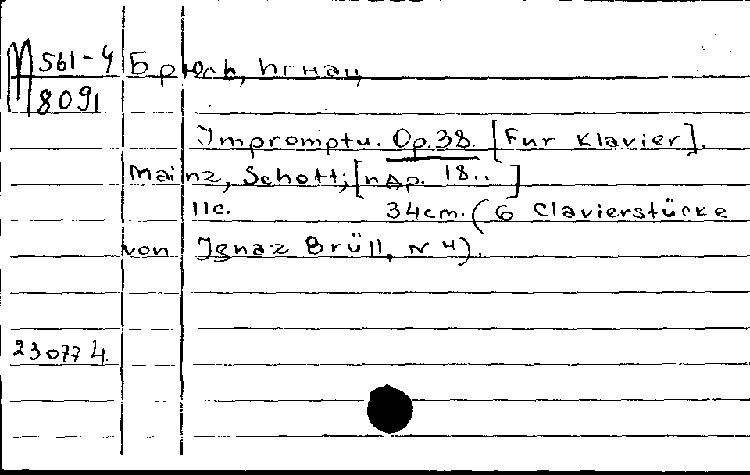 М 561-4
8091
Брюль, Игнац
Impromptu. Op. 38. [Fur Klavier].
Mainz, Schott, [пдр. 18..]
11с. 34cm. (6 Clavierstücke
von Ignaz Brüll, N 4).
23077 4.